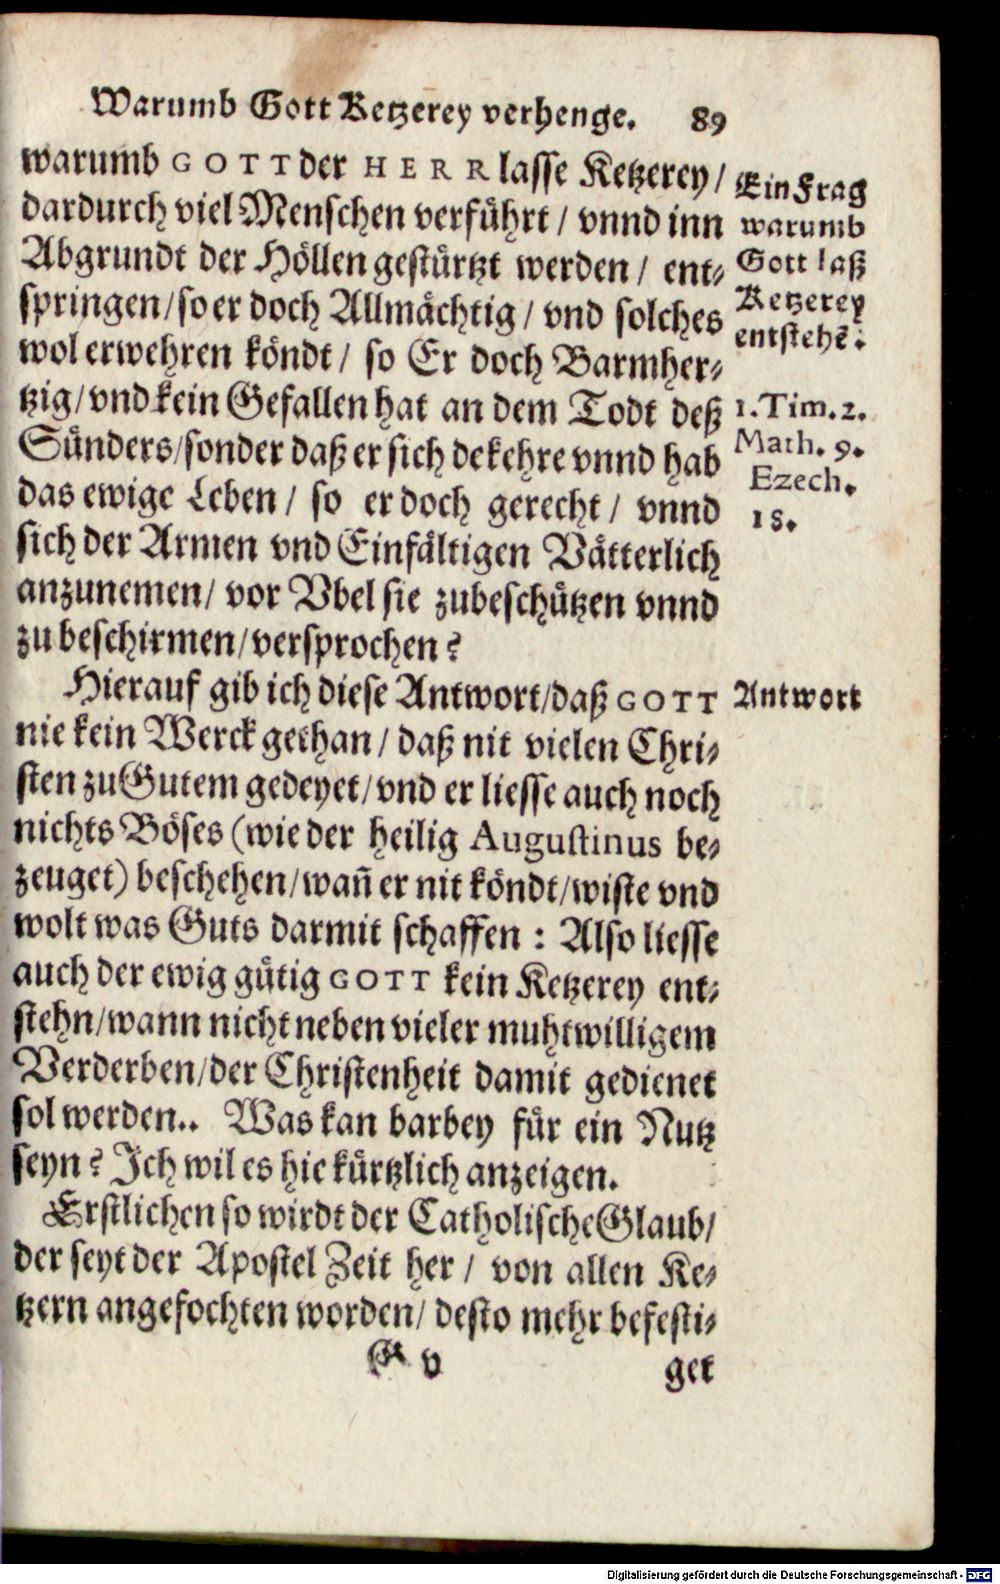 Warumb Gott Ketzerey verhenge. 89
warumb GOTT der HERR lasse Ketzerey /
dardurch viel Menschen verführt / vnnd inn
Abgrundt der Höllen gestürtzt werden / ent-
springen / so er doch Allmächtig / vnd solches
wol erwehren köndt / so Er doch Barmher-
tzig / vnd kein Gefallen hat an dem Todt deß
Sünders / sonder daß er sich dekehre vnnd hab
das ewige Leben / so er doch gerecht / vnnd
sich der Armen vnd Einfältigen Vätterlich
anzunemen / vor Vbel sie zubeschützen vnnd
zu beschirmen / versprochen?
Ein Frag
warumb
Gott laß
Ketzerey
entstehẽ.
1. Tim. 2.
Math. 9.
Ezech.
18.
Hierauf gib ich diese Antwort / daß GOTT
nie kein Werck gethan / daß nit vielen Chri-
sten zu Gutem gedeyet / vnd er liesse auch noch
nichts Böses (wie der heilig Augustinus be-
zeuget) beschehen / wañ er nit köndt / wiste vnd
wolt was Guts darmit schaffen : Also liesse
auch der ewig gütig GOTT kein Ketzerey ent-
stehn / wann nicht neben vieler muhtwilligem
Verderben / der Christenheit damit gedienet
sol werden.. Was kan barbey für ein Nutz
seyn? Ich wil es hie kürtzlich anzeigen.
Antwort
Erstlichen so wirdt der Catholische Glaub /
der seyt der Apostel Zeit her / von allen Ke-
tzern angefochten worden / desto mehr befesti-
G v
get
Digitalisierung gefördert durch die Deutsche Forschungsgemeinschaft - DFG